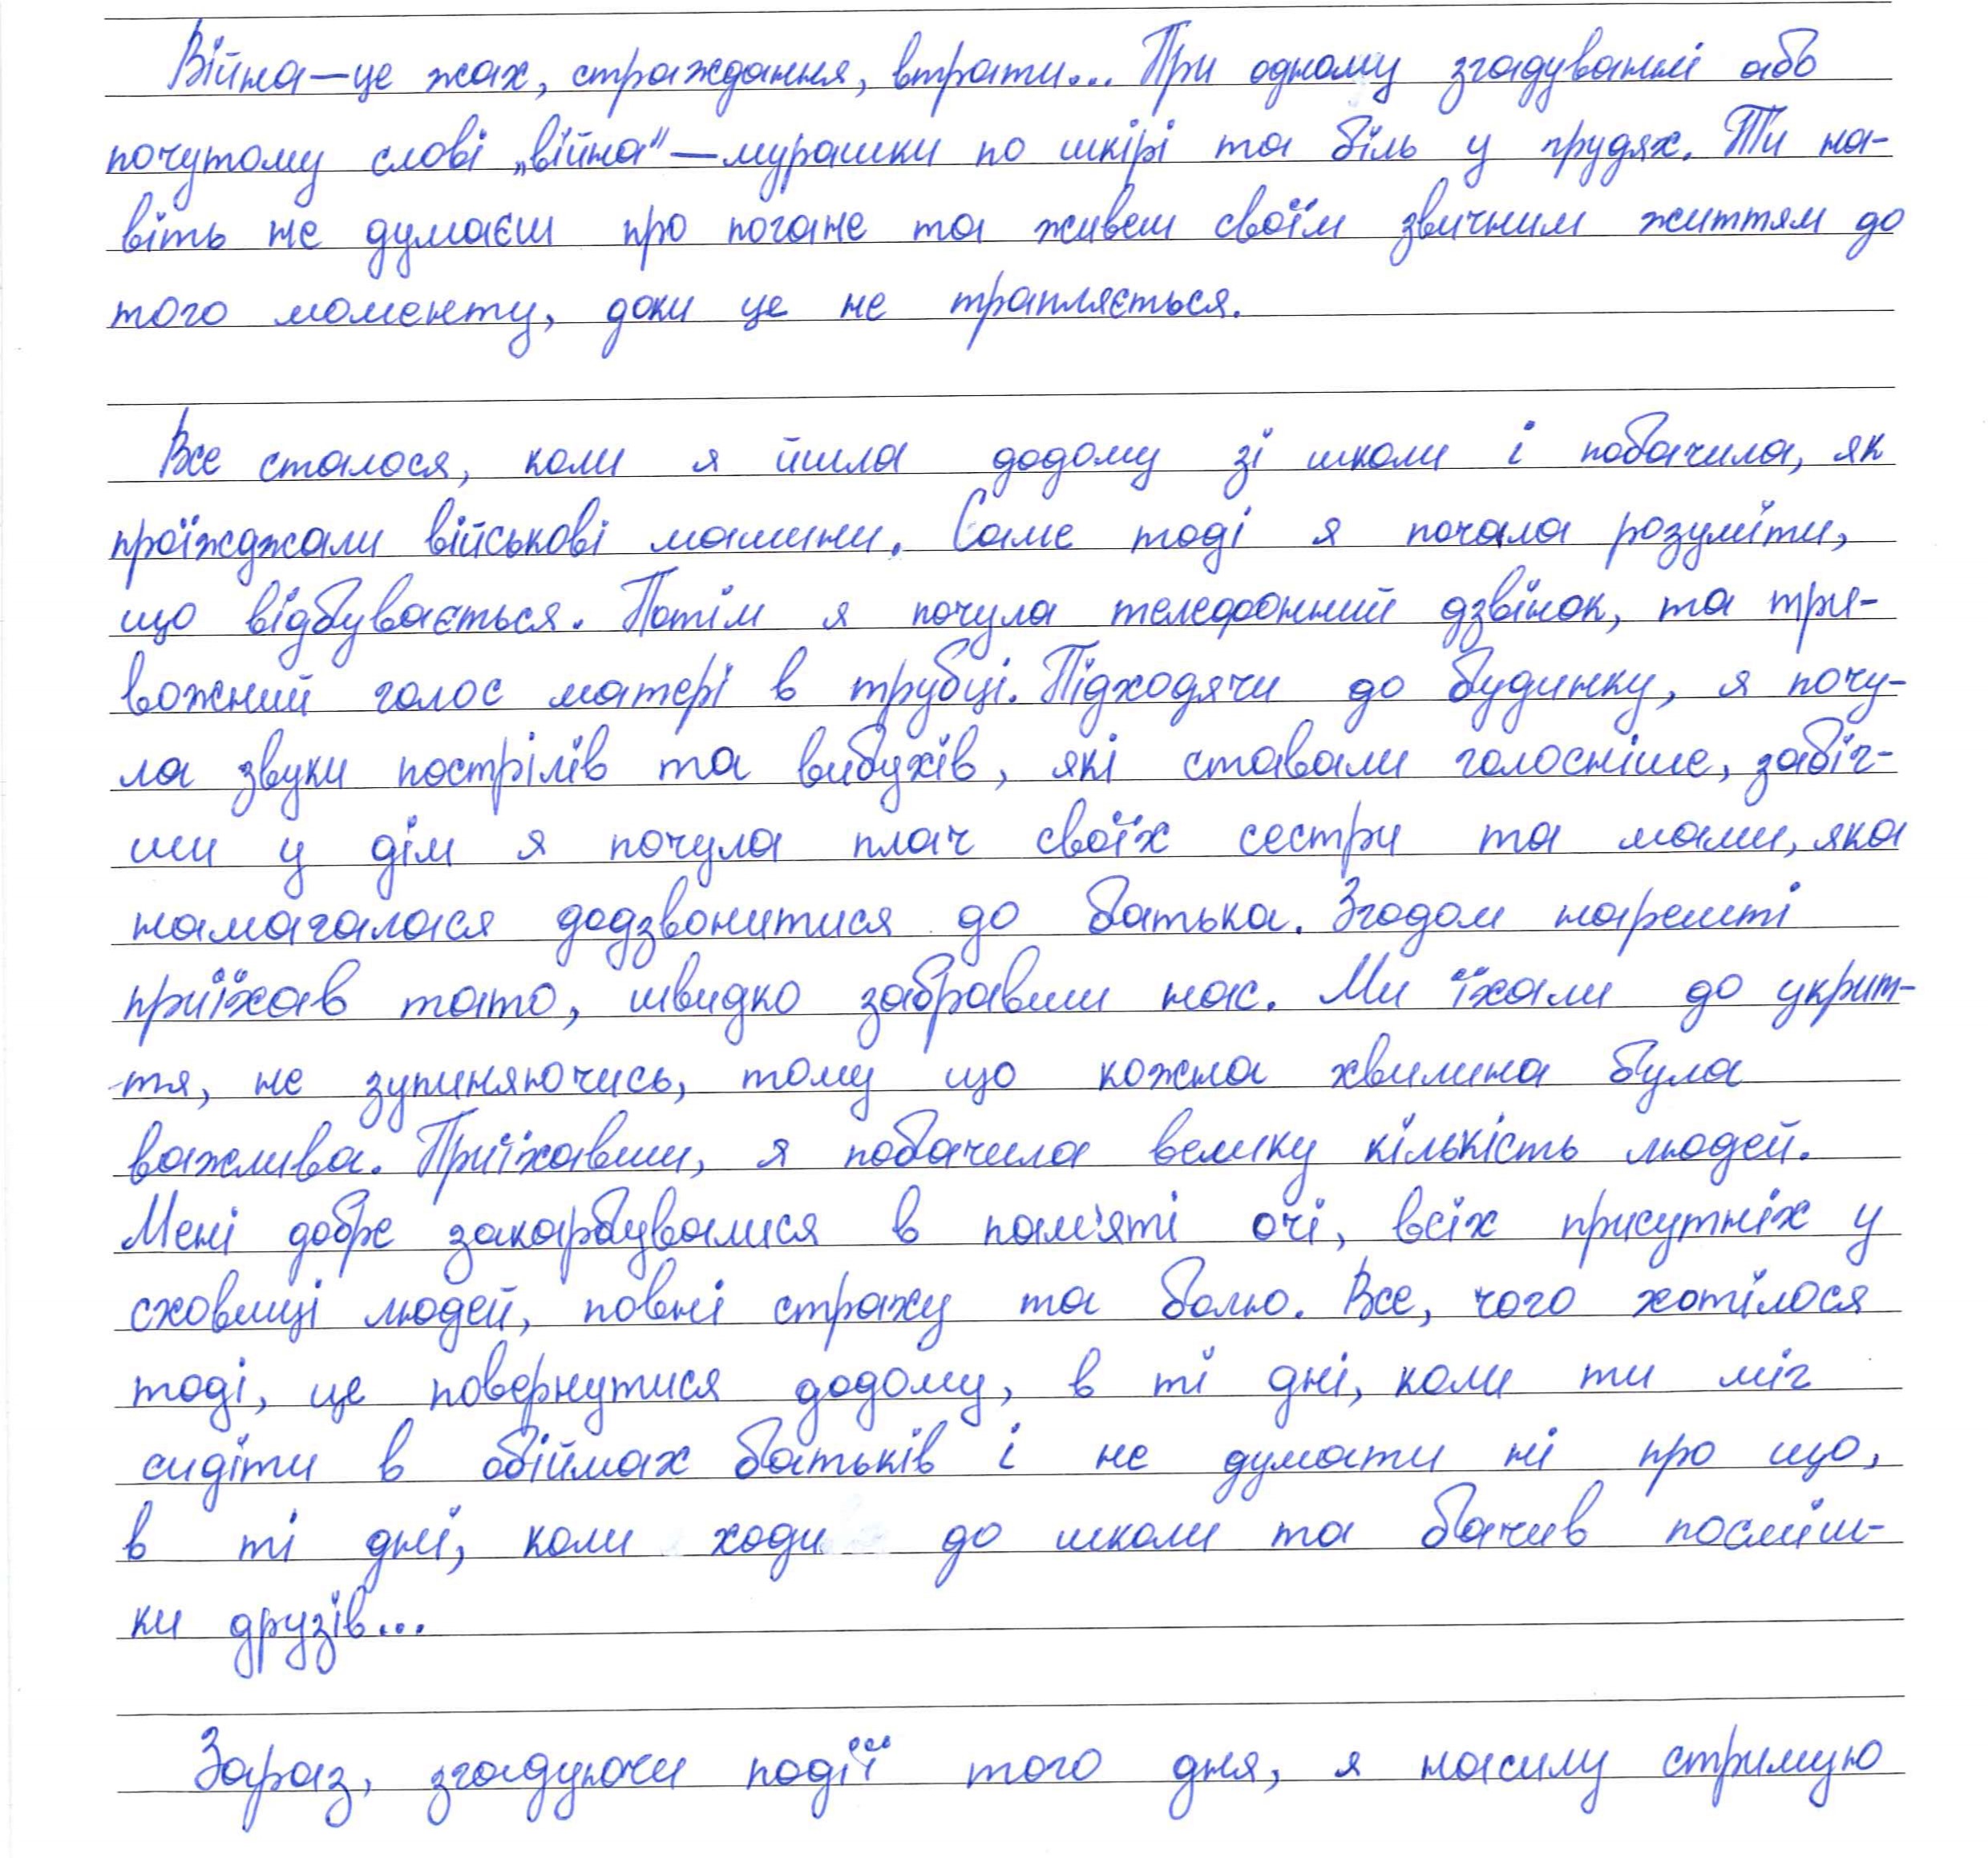 Війна—це жах, страждання, втрати... При одному згадуванні або
почутому слові „війна"—мурашки по шкірі та біль у грудях. Ти на-
віть не думаєш про погане та живеш своїм звичним життям до
того моменту, доки це не трапляється.
Все сталося, коли я йшла додому зі школи і побачила, як
проїжджали військові машини. Саме тоді я почала розуміти,
що відбувається. Потім я почула телефонний дзвінок, та три-
вожний голос матері в трубці. Підходячи до будинку, я почу-
ла звуки пострілів та вибухів, які ставали голосніше, забіг-
ши у дім я почула плач своїх сестри та мами, яка
намагалася додзвонитися до батька. Згодом нарешті
приїхав тато, швидко забравши нас. Ми їхали до укрит-
-тя, не зупиняючись, тому що кожна хвилина була
важлива. Приїхавши, я побачила велику кількість людей.
Мені добре закарбувалися в пам'яті очі, всіх присутніх у
сховищі людей, повні страху та болю. Все, чого хотілося
тоді, це повернутися додому, в ті дні, коли ти міг
сидіти в обіймах батьків і не думати ні про що,
в ті дні, коли ходи до школи та бачив посміш-
ки друзів...
Зараз, згадуючи події того дня, я насилу стримую